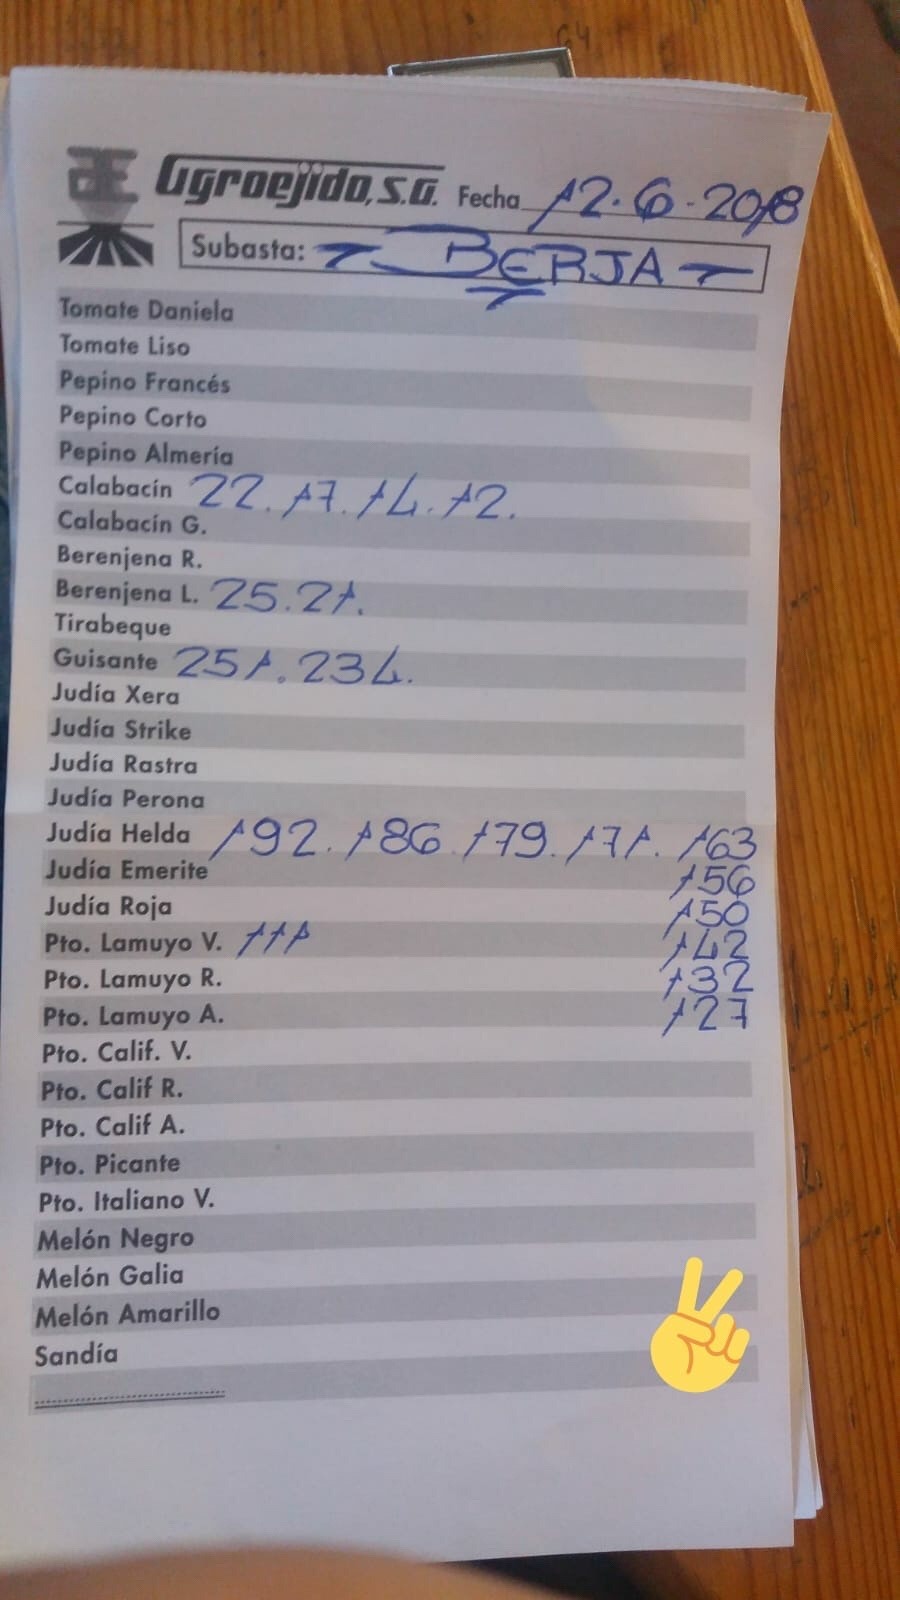 Agroejido, S.A. Fecha 12-6-2018
Subasta: BERJA
Tomate Daniela
Tomate Liso
Pepino Francés
Pepino Corto
Pepino Almería
Calabacín 22. 17. 14. 12.
Calabacín G.
Berenjena R.
Berenjena L. 25. 21.
Tirabeque
Guisante 251. 234.
Judía Xera
Judía Strike
Judía Rastra
Judía Perona
Judía Helda 192. 186. 179. 171. 163
Judía Emerite 156
Judía Roja 150
Pto. Lamuyo V. 111 142
Pto. Lamuyo R. 132
Pto. Lamuyo A. 127
Pto. Calif. V.
Pto. Calif R.
Pto. Calif A.
Pto. Picante
Pto. Italiano V.
Melón Negro
Melón Galia
Melón Amarillo
Sandía